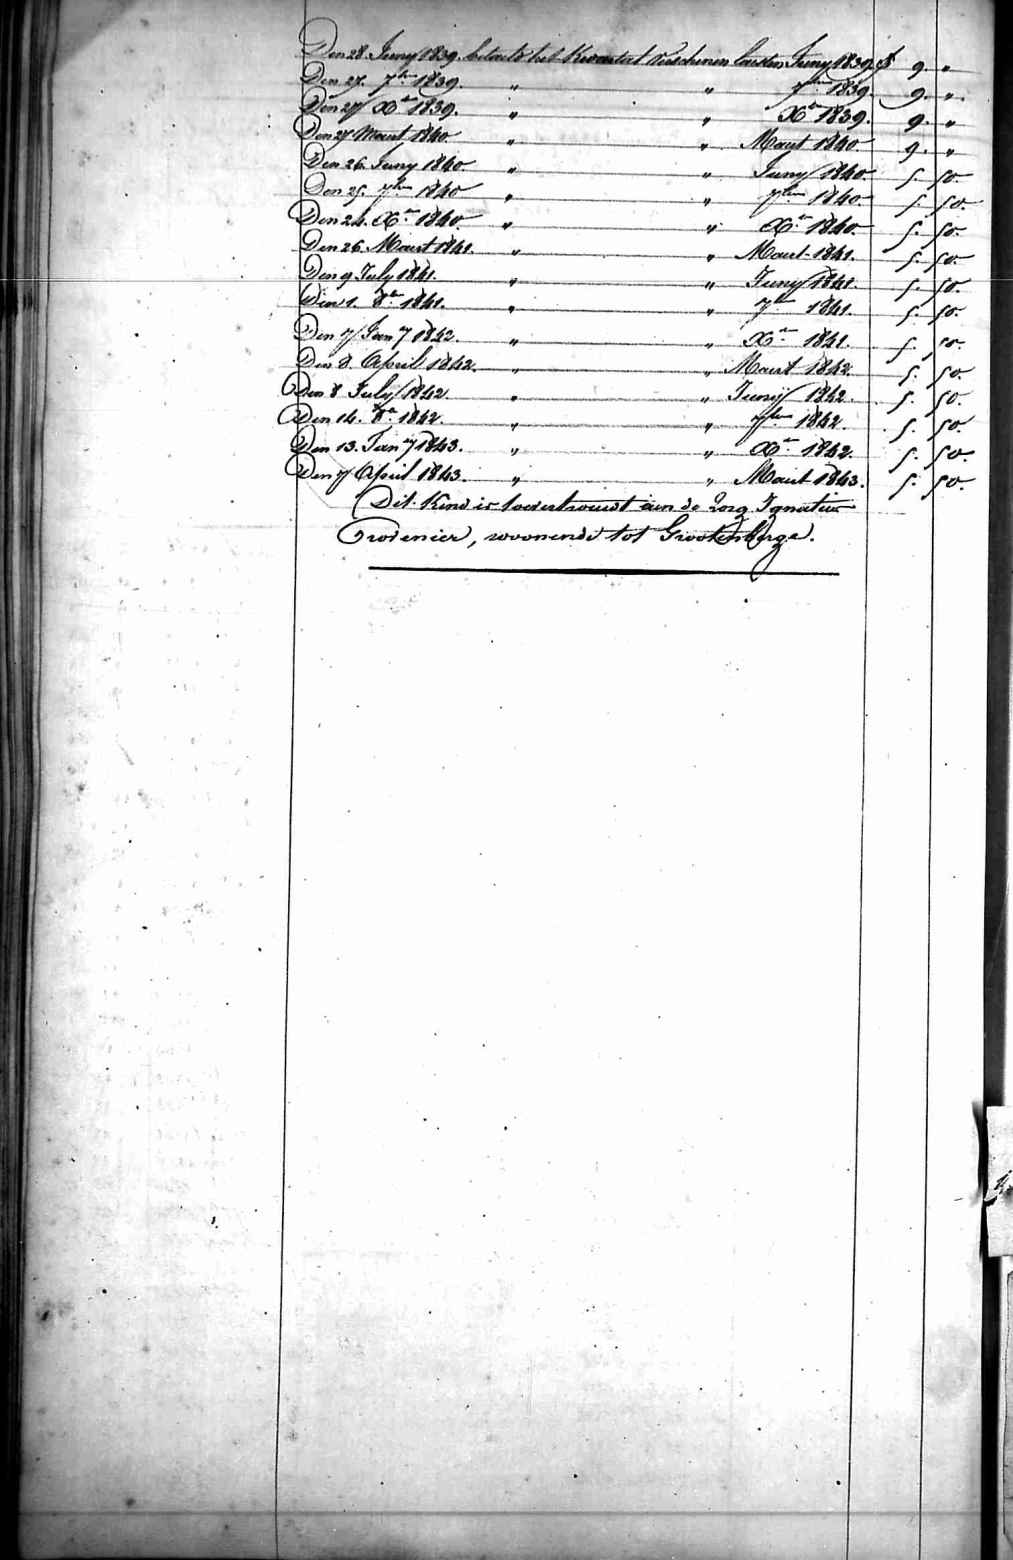 Den 28. Juny 1839. betaelt het Kwartael verschenen laesten Juny 1839. f 9. "
Den 27. 7ber 1839. " " 7ber 1839. 9. "
Den 27 Xber 1839. " " Xber 1839. 9. "
Den 27 Maart 1840. " " Maart 1840. 9. "
Den 26. Juny 1840. " " Juny 1840 5. 50.
Den 25. 7ber 1840 " " 7ber 1840. 5. 50.
Den 24. Xber 1840. " " Xber 1840. 5. 50.
Den 26. Maart 1841. " " Maart 1841. 5. 50.
Den 9 July 1841. " " Juny 1841. 5. 50.
Den 1. 8ber 1841. " " 7ber 1841. 5. 50.
Den 7 Jany 1842. " " Xber 1841. 5. 50.
Den 8. April 1842. " " Maart 1842. 5. 50.
Den 8 July 1842. " " Junij 1842. 5. 50.
Den 14. 8ber 1842. " " 7ber 1842. 5. 50.
Den 13. Jany 1843. " " Xber 1842. 5. 50.
Den 7 April 1843. " " Maart 1843. 5. 50.
Dit Kind is toevertrouwt aen de Zorg Ignatius
, woonende tot Grootenberge.